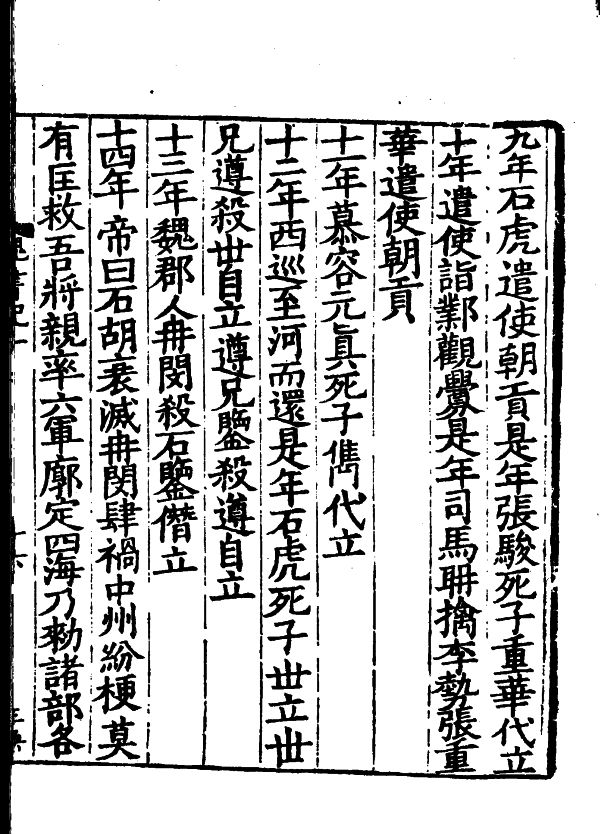 九年石虎遣使朝貢是年張駿死子重華代立
十年遣使詣鄴觀釁是年司馬聃擒李勢張重
華遣使朝貢
十一年慕容元眞死子儁代立
十二年西巡至河而還是年石虎死子世立世
兄遵殺世自立遵兄鑒殺遵自立
十三年魏郡人冉閔殺石鑒僭立
十四年帝曰石胡衰滅冉閔肆禍中州紛梗莫
有匡救吾將親率六軍廓定四海乃勑諸部各